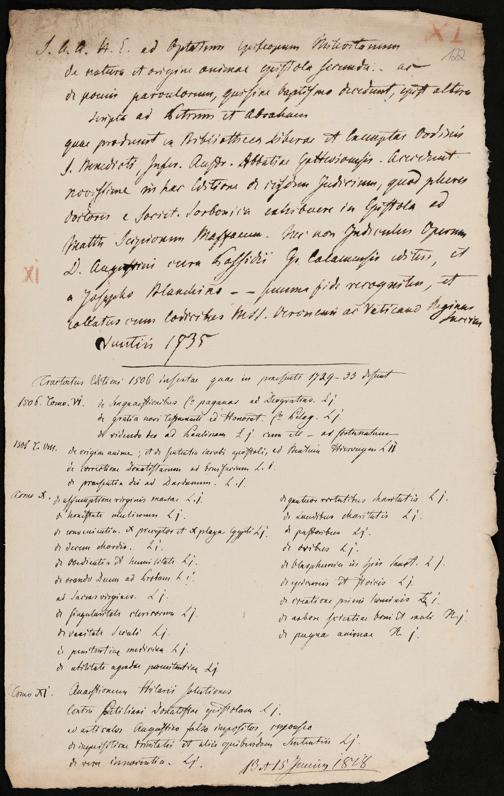 XI
172
S. A. A. H. E. ad Optatum Episcopum Milevitanum
de natura et origine animae epistola secunda: ac
de poenis parvulorum, qui sine baptismo decedunt, epist altera
scripta ad Petrum et Abraham
quae prodeunt in Bibliotheca Libera et Exempta Ordinis
S. Benedicti Infer. Austr. Abbatiae Gottwicensis. Accedunt
novissime in hac Editione de iisdem Judicium, quod plures
Doctores e Societ. Sorbonica exhibuere in Epistola ad
Matth. Scipionem Maffaeum. Nec non Indiculus Operum
D. Augustini cura Possidii Ep Calamensis editus, et
XI
a Josepho Blanchino - - summa fide recognitus, et
collatus cum Codicibus Mss. Veronensi ac Vaticano Reginae
Sueciae
1735
Tractatus Editioni 1506 insertae quae in praesenti 1729-33 desunt
1506. Tomo. VI. de contra paganos ad Deogratias. L j
de gratia novi testamenti ad Honorat. L j
de videndo deo ad Paulinam L j cum
1506 T. VIII. de origine animae; et de sententia Jacobi apostoli, ad Hieronym L II
de correctione Donatistarum ad bonifacium L. I.
de praesentia dei ad Dardanum. L. I.
Tomo X. de assumptione virginis mariae L. j.
de honestate mulierum L j
de convenientia X praeceptor et X plagar Egypti L j.
de decem chordis. L j.
de obedientia et humilitate L j.
de orando Deum ad Probam L j.
ad sacras virgines. L j.
de singularitate clericorum L j
de vanitate seculi L j
de penitentiae medicina L j.
de utilitate agendae poenitentiae L j
de quatuor virtutibus charitatis L j.
de Laudibus charitatis L j.
de pastoribus L j.
de ovibus L j.
de blasphemia in spir. sanct. L. j.
de epicureis et stoicis L j
de creatione primi hominis L j.
de arbore scientiae boni et mali L j
de pugna animae L j.
Tomo XI. Quaestionum Hilarii solutiones
Contra Petiliani Donatistae epistolam L j.
ad articulos Augustino falso impositos responsio
de inquisitione trinitatis et aliis quibusdam sententiis L j.
de vera innocentia. L j.
1828